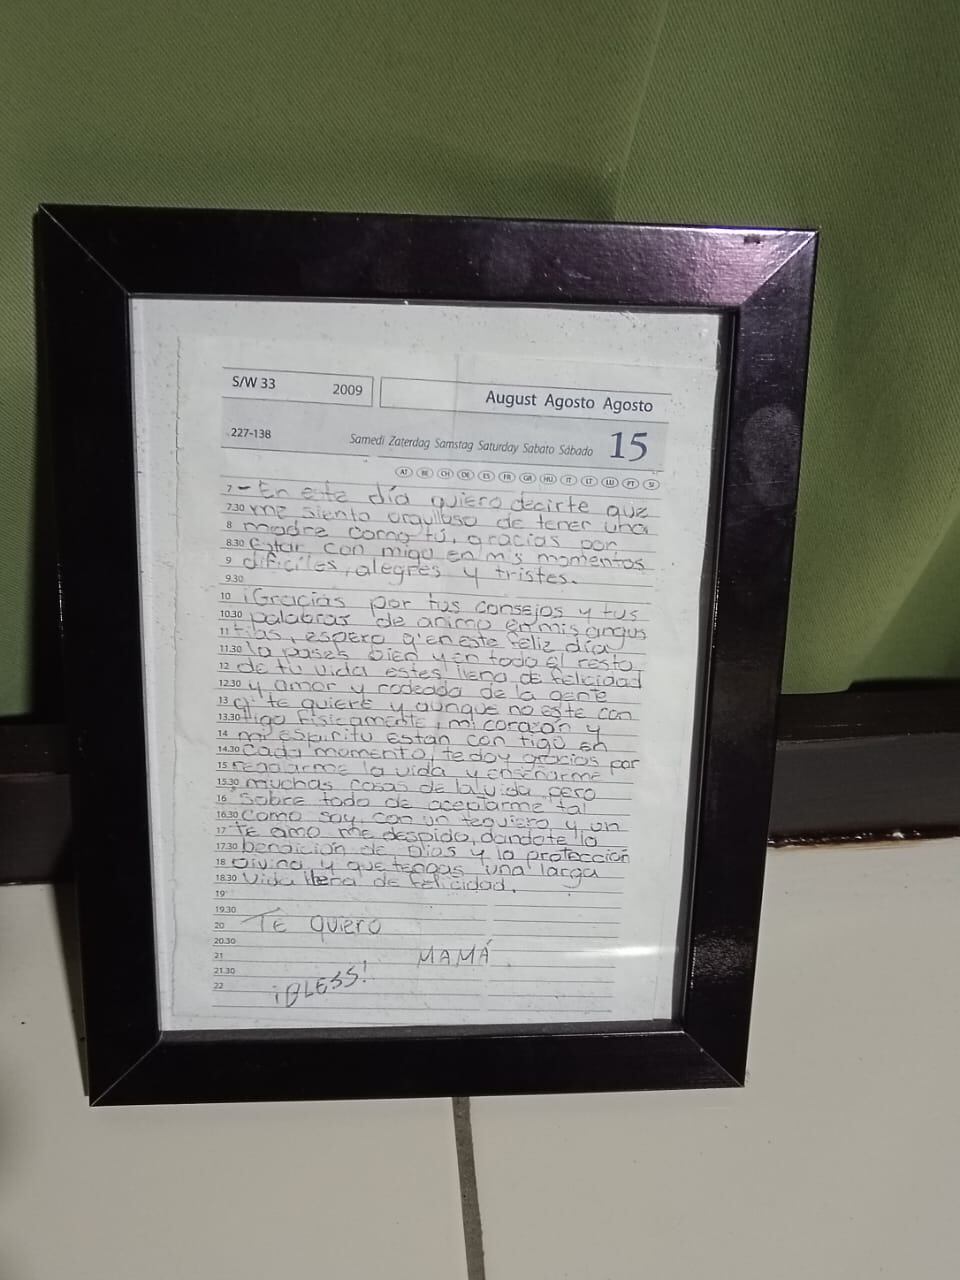 S/W 33 2009
August Agosto Agosto
227-138 Samedi Zaterdag Samstag Saturday Sabato Sábado 15
AT BE CH DE ES FR GB HU IT LT LU PT SI
7 - En este día quiero decirte que
7.30 me siento orgulloso de tener una
8 madre como tú, gracias por
8.30 estar con migo en mis momentos
9 dificiles, alegres y tristes.
9.30
10 ¡Gracias por tus consejos y tus
10.30 palabras de animo en mis angus
11 tias, espero q' en este feliz día
11.30 la pases bien y en todo el resto
12 de tu vida estes llena de felicidad
12.30 y amor y rodeada de la gente
13 q' te quiere y aunque no este con
13.30 tigo fisicamente, mi corazón y
14 mi espiritu estan con tigo en
14.30 cada momento, te doy gracias por
15 regalarme la vida y enseñarme
15.30 muchas cosas de la vida pero
16 sobre todo de aceptarme tal
16.30 como soy, con un te quiero y un
17 te amo me despido, dandote la
17.30 bendición de Dios y la protección
18 Divina y que tengas una larga
18.30 vida llena de felicidad.
19
19.30
20 TE quiero
20.30
21 MAMÁ
21.30
22 ¡BLESS!